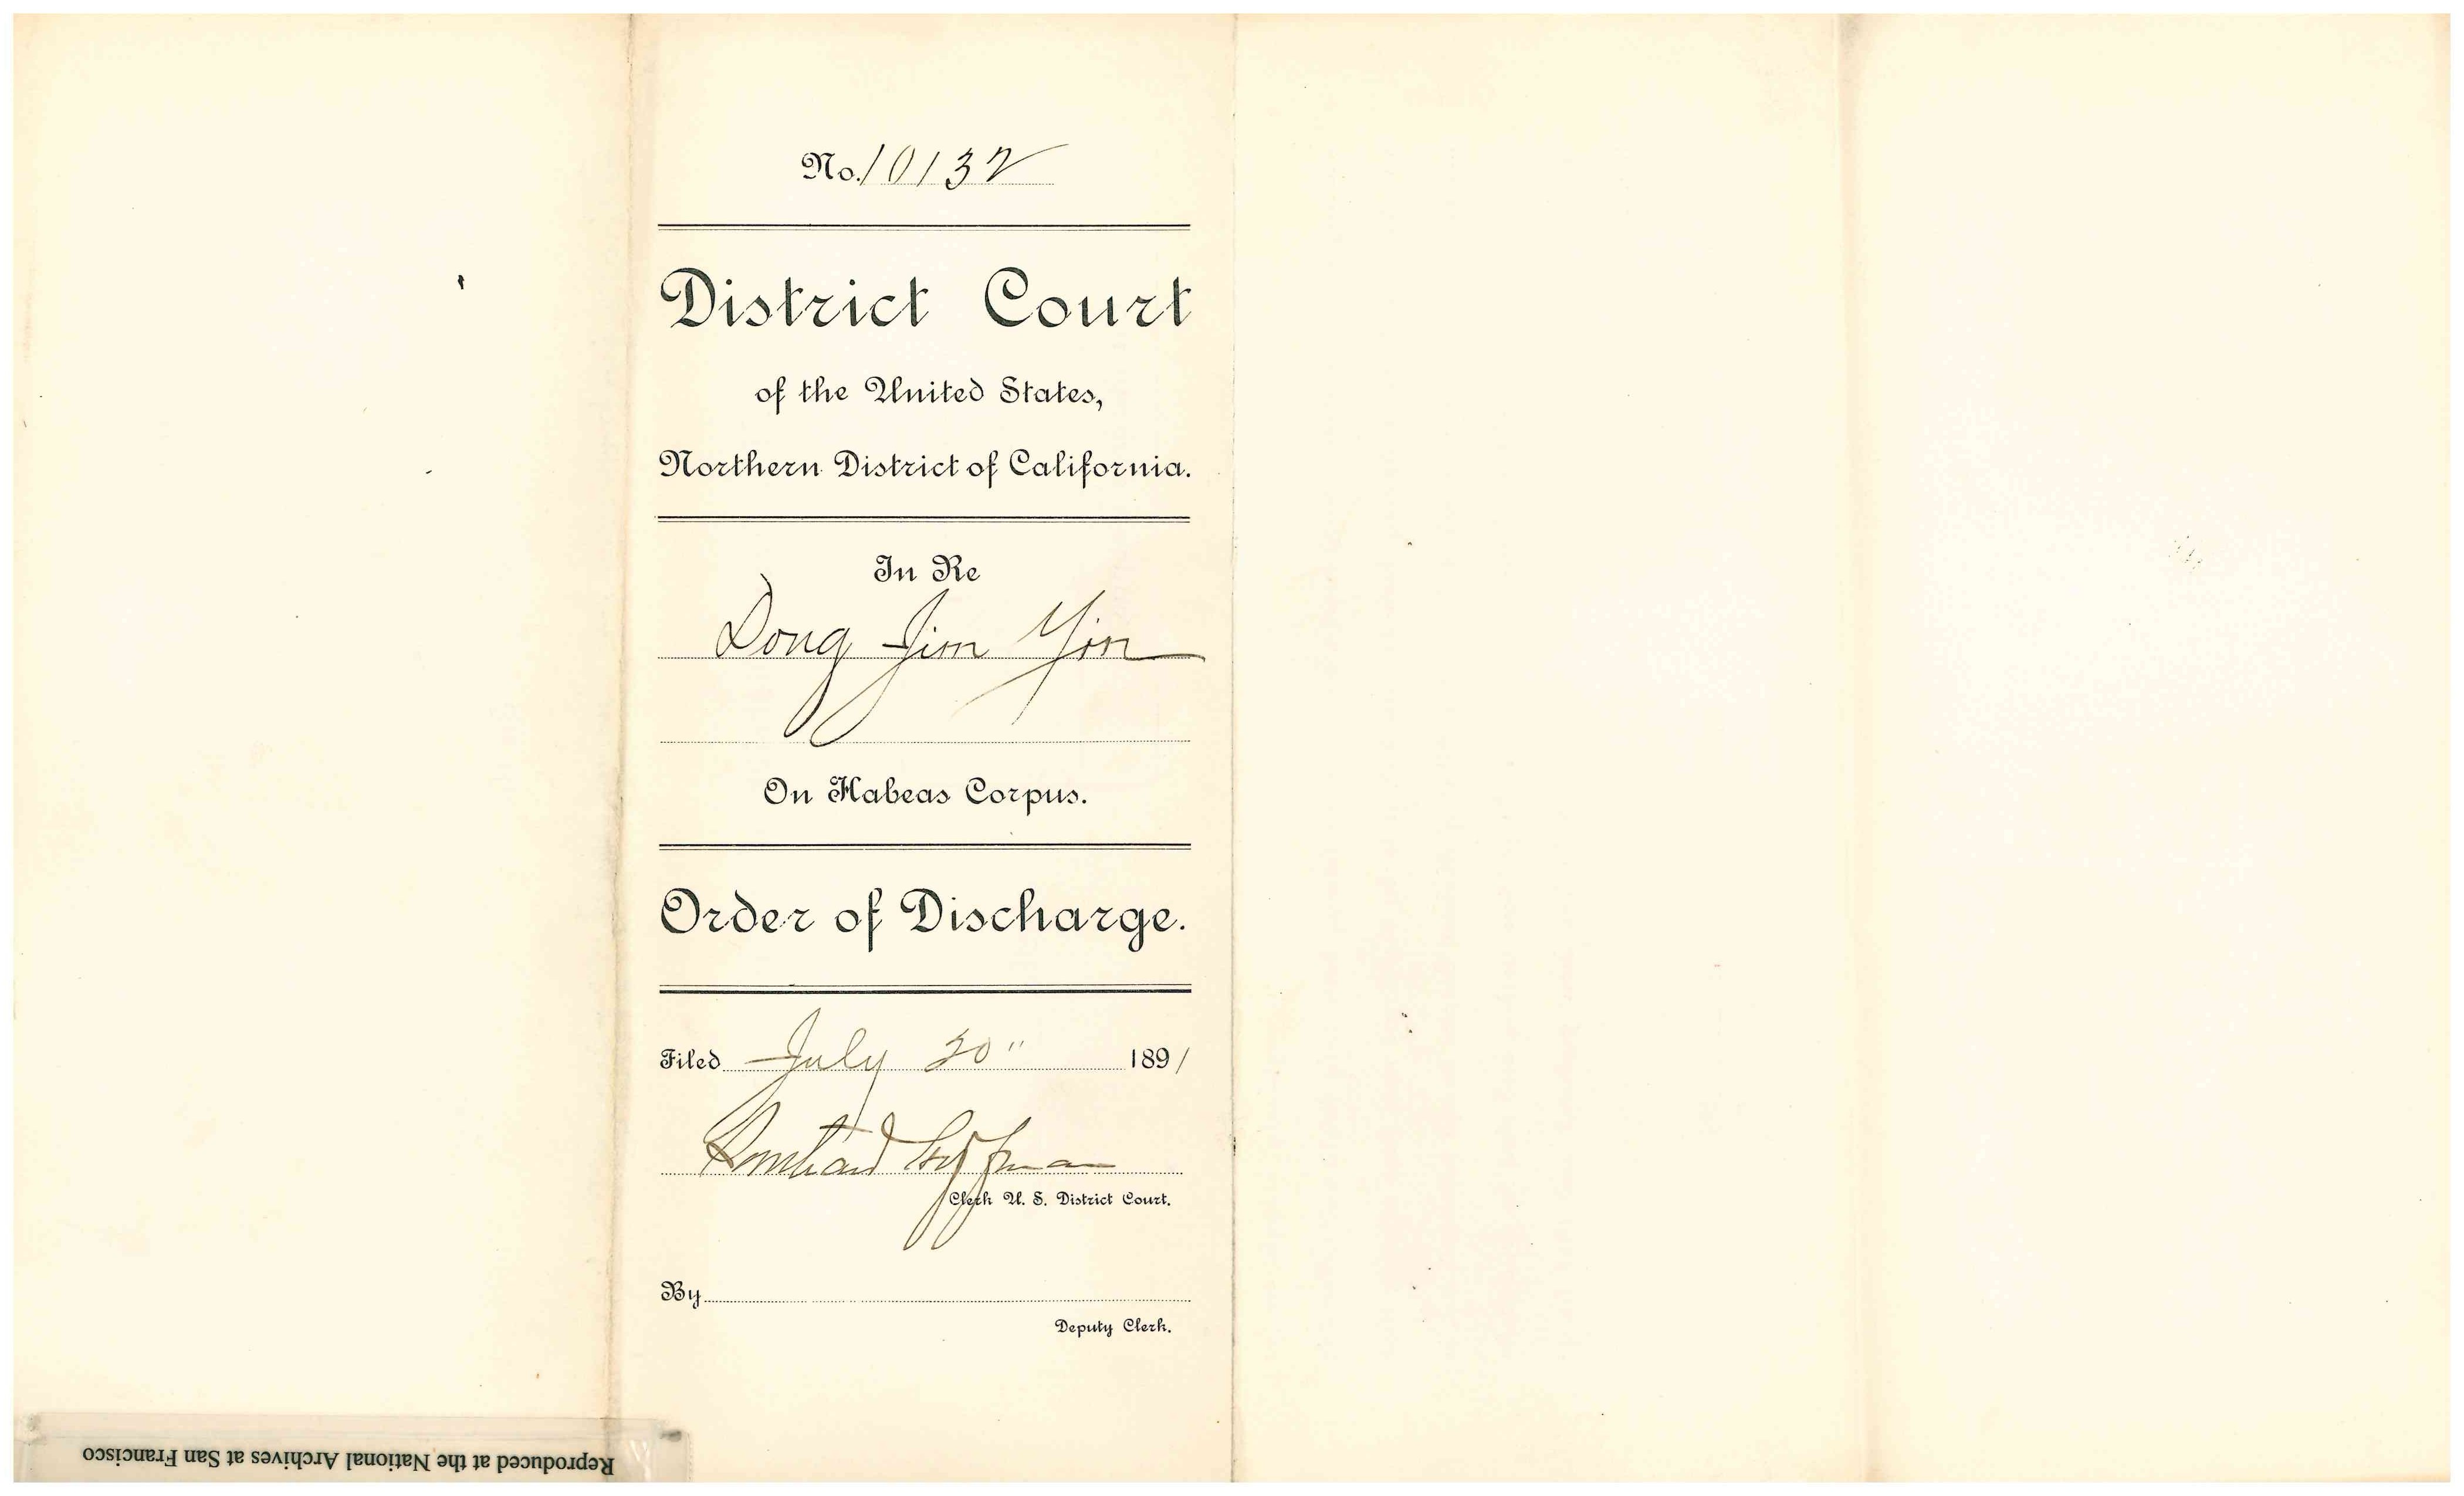 No. 10132
District Court
of the United States,
Northern District of California.
In Re
Dong Jim Yin
On Habeas Corpus.
Order of Discharge.
Filed July 20" 1891
Hoffman
Clerk U. S. District Court.
By
Deputy Clerk.
Reproduced at the National Archives at San Francisco